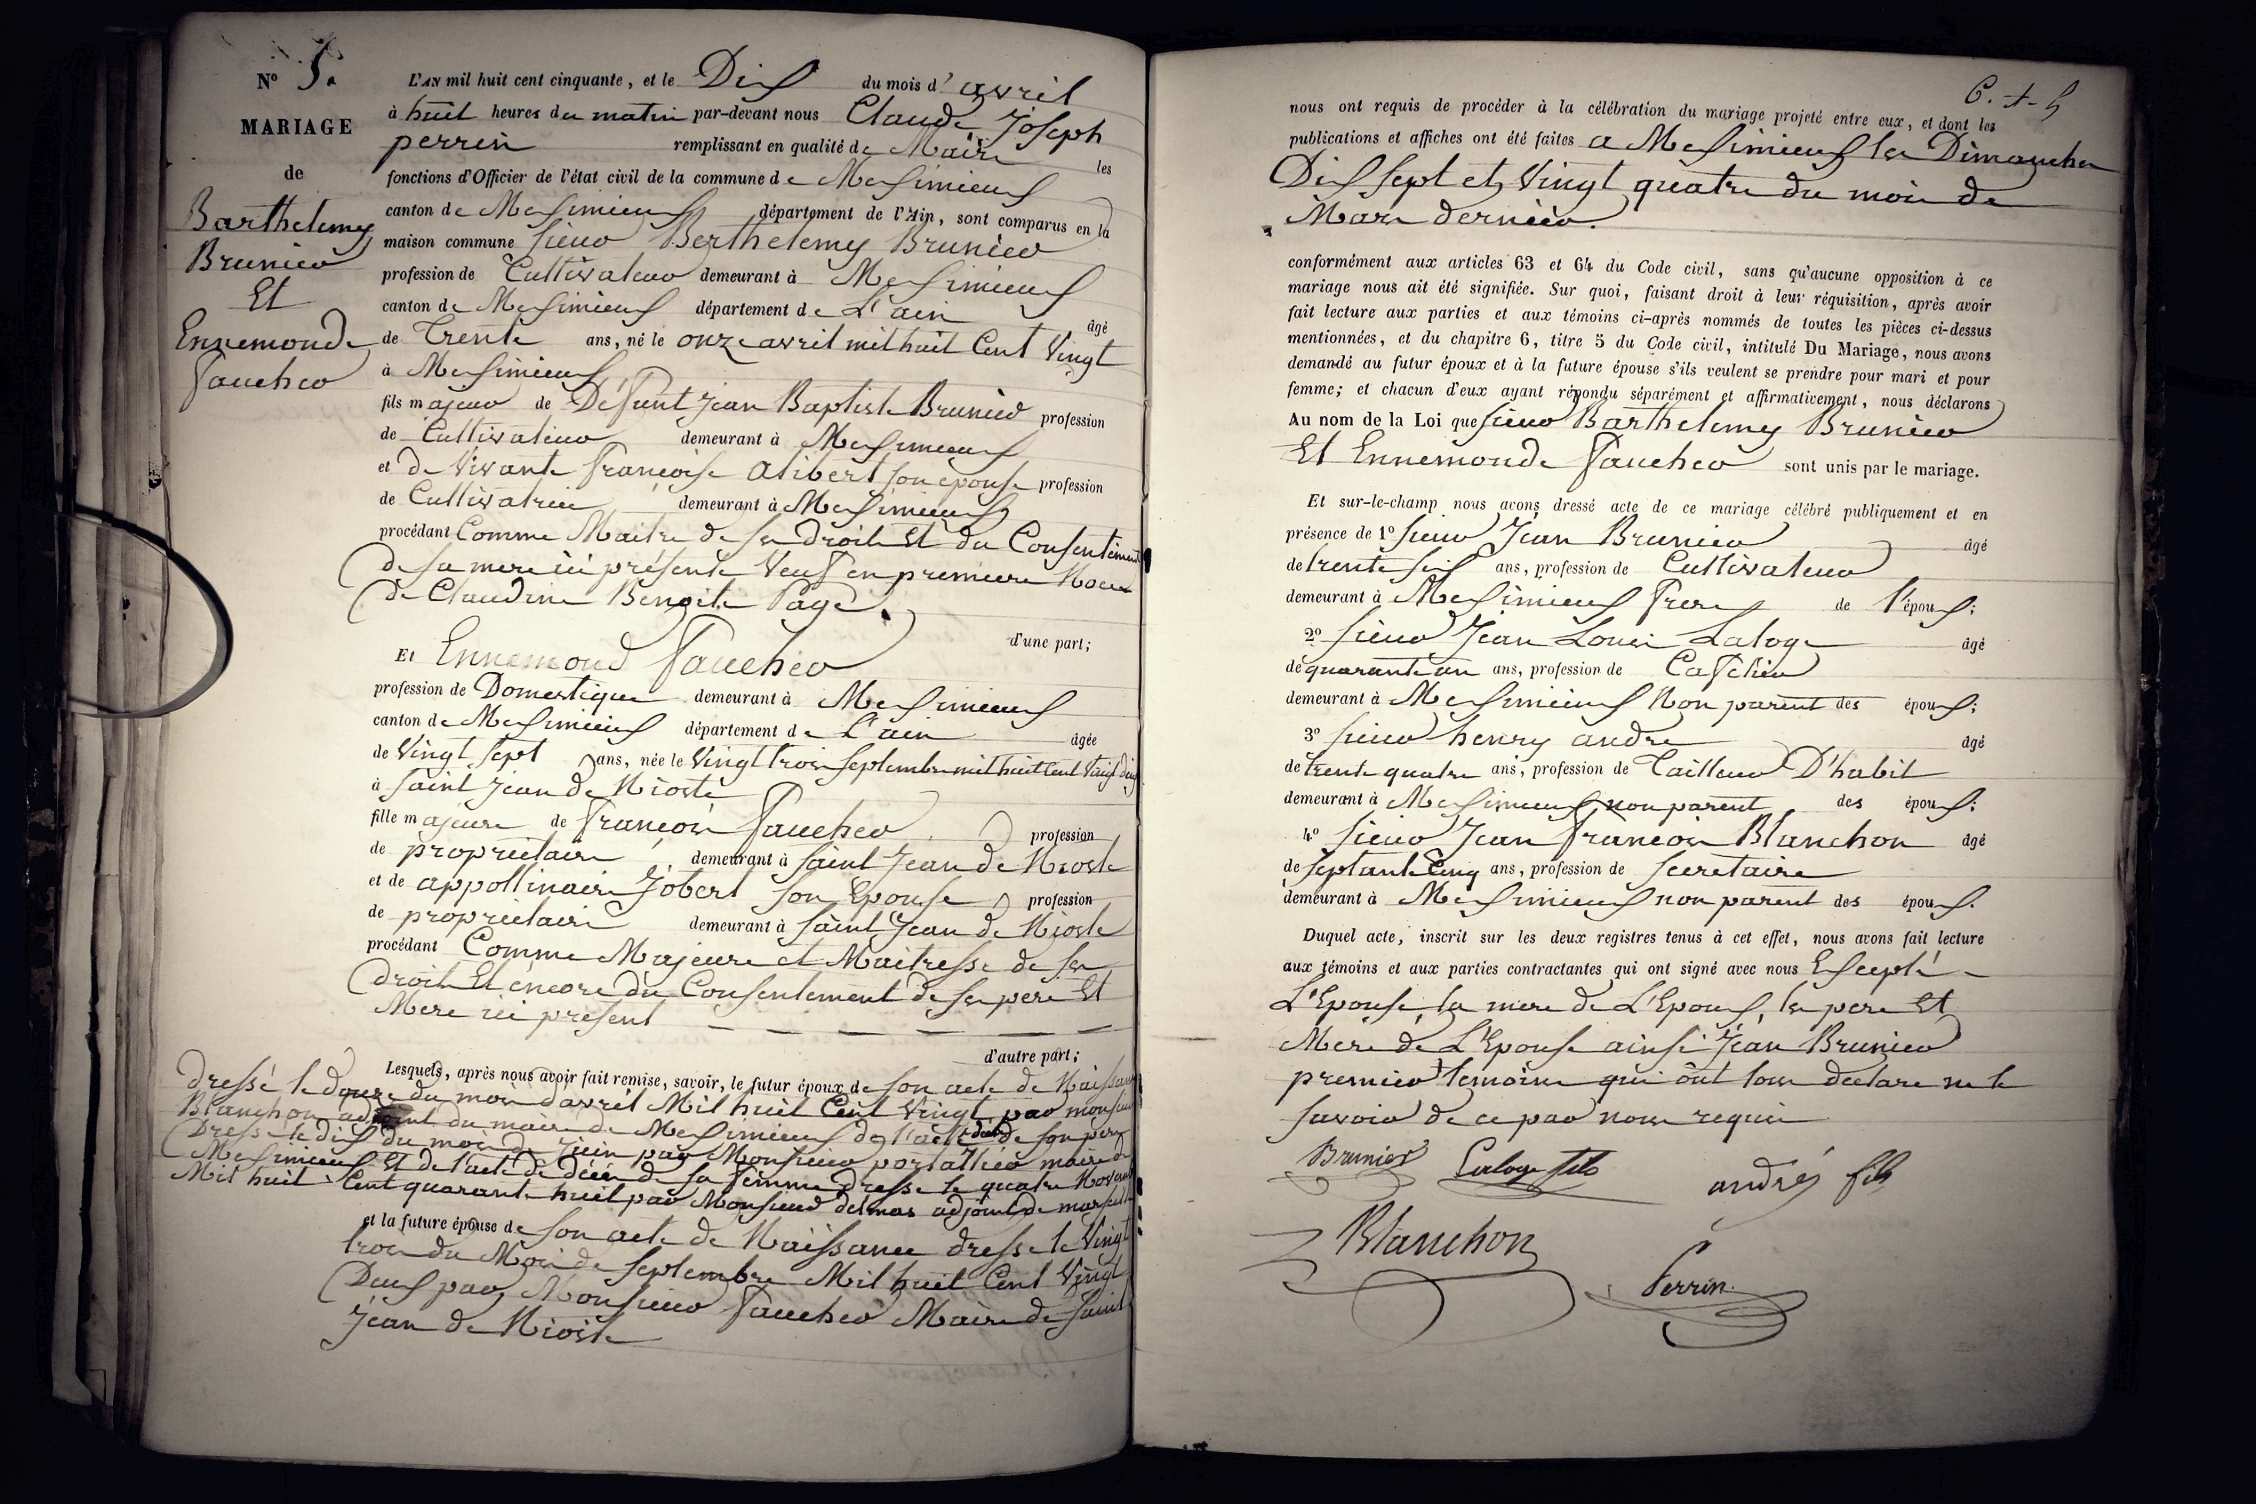 N° 5.
MARIAGE
de
Barthelemy
Brunier
Et
Ennemonde
Faucher
L'AN mil huit cent cinquante, et le Dix du mois d'avril
à huit heures du matin par-devant nous Claude Joseph
perrin remplissant en qualité de Maire les
fonctions d'Officier de l'état civil de la commune de Meximieux
canton de Meximieux département de l'Ain, sont comparus en la
maison commune sieur Berthelemy Brunier
profession de Cultivateur demeurant à Meximieux
canton de Meximieux département de L'ain âgé
de Trente ans, né le onze avril mil huit Cent Vingt
à Meximieux
fils majeur de Défunt Jean Baptiste Brunier profession
de Cultivateur demeurant à Meximieux
et de Vivante Françoise alibert son épouse profession
de Cultivatrice demeurant à Meximieux
procédant Comme Maitre de ses droits Et du Consentement
de sa mere ici présente Veuf en premiere Noces
de Claudine Benoite Page
d'une part;
Et Ennemond Faucher
profession de Domestique demeurant à Meximieux
canton de Meximieux département de L'ain âgée
de Vingt sept ans, née le Vingt trois septembre mil huit cent vingt deux
à Saint Jean de Nioste
fille majeure de François Faucher profession
de propriétaire demeurant à Saint Jean de Nioste
et de appollinaire Jobert son Epouse profession
de propriétaire demeurant à Saint Jean de Nioste
procédant Comme Majeure et Maitresse de ses
droits Et encore du Consentement de ses pere Et
Mere ici présent
d'autre part;
Lesquels, après nous avoir fait remise, savoir, le futur époux de son acte de Naissance
dressé le douze du mois d'avril Mil huit Cent Vingt par monsieur
Blanchon adjoint du maire de Meximieux de l'acte de décès de son pere
Dressé le dix du mois de Juin par Monsieur portallier maire de
Meximieux Et de l'acte de décès de sa femme dressé le quatre Novembre
Mil huit Cent quarante huit par Monsieur delmas adjoint de marseille
et la future épouse de son acte de Naissance dressé le Vingt
trois du Mois de Septembre Mil huit Cent Vingt
Deux par Monsieur Faucher Maire de Saint
Jean de Nioste
nous ont requis de procéder à la célébration du mariage projeté entre eux, et dont les
publications et affiches ont été faites a Meximieux les Dimanches
Dix sept et Vingt quatre du mois de
Mars dernier.
conformément aux articles 63 et 64 du Code civil, sans qu'aucune opposition à ce
mariage nous ait été signifiée. Sur quoi, faisant droit à leur réquisition, après avoir
fait lecture aux parties et aux témoins ci-après nommés de toutes les pièces ci-dessus
mentionnées, et du chapitre 6, titre 5 du Code civil, intitulé Du Mariage, nous avons
demandé au futur époux et à la future épouse s'ils veulent se prendre pour mari et pour
femme; et chacun d'eux ayant répondu séparément et affirmativement, nous déclarons
Au nom de la Loi que sieur Barthelemy Brunier
Et Ennemonde Faucher sont unis par le mariage.
Et sur-le-champ nous avons dressé acte de ce mariage célébré publiquement et en
présence de 1° sieur Jean Brunier âgé
de trente six ans, profession de Cultivateur
demeurant à Meximieux Frere de l'époux;
2° sieur Jean Louis Laloge âgé
de quarante un ans, profession de Caffetier
demeurant à Meximieux Non parent des époux;
3° sieur henry andre âgé
de trente quatre ans, profession de Tailleur D'habit
demeurant à Meximieux non parent des époux;
4° sieur Jean François Blanchon âgé
de septante Cinq ans, profession de secretaire
demeurant à Meximieux non parent des époux.
Duquel acte, inscrit sur les deux registres tenus à cet effet, nous avons fait lecture
aux témoins et aux parties contractantes qui ont signé avec nous Excepté
L'Epouse, la mere de L'Epoux, les pere Et
Mere de L'Epouse ainsi Jean Brunier
premier temoins qui ont tous declare ne le
savoir de ce par nous requis
Brunier Laloge fils andré fils
Blanchon
Perrin